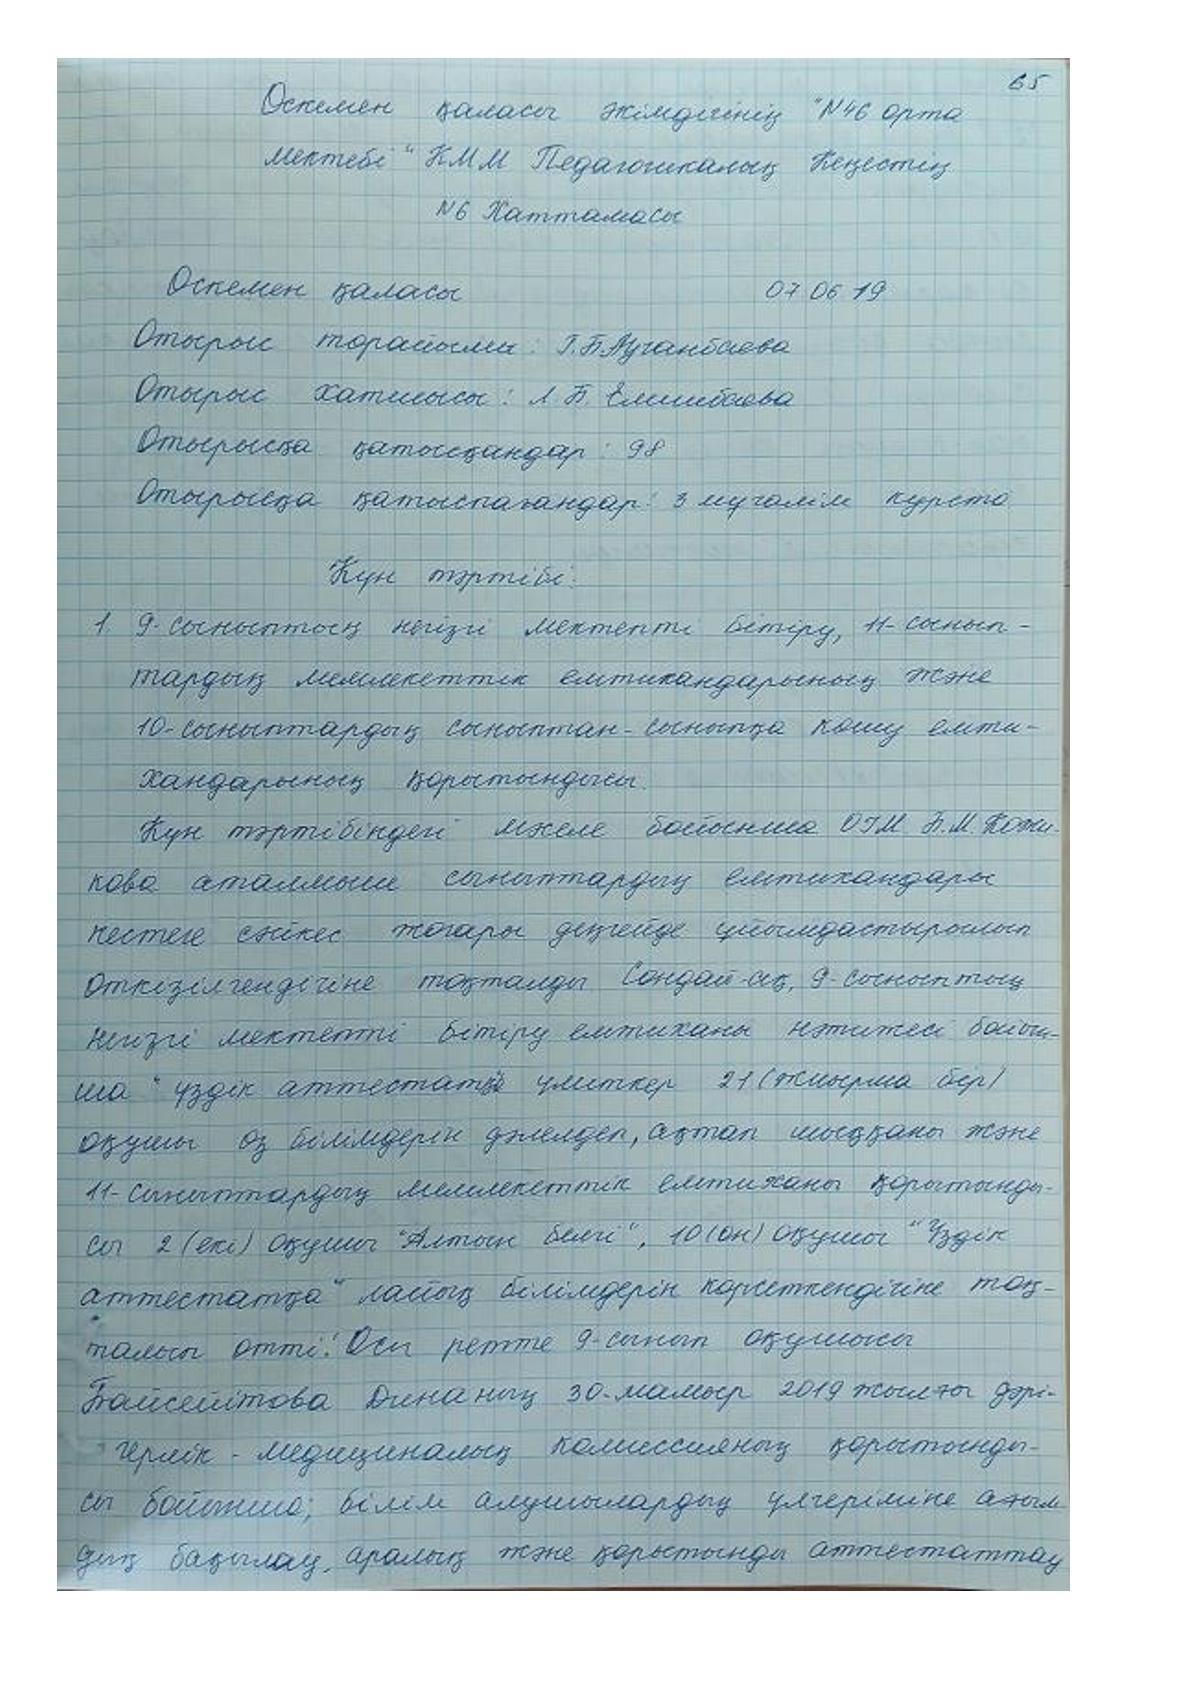 65
Өскемен қаласы әкімдігінің "N46 орта
мектебі" КММ Педагогикалық Кеңестің
N6 Хаттамасы
Өскемен қаласы 07 06 19
Отырыс торайымы: Г.Б.Ауганбаева
Отырыс хатшысы: Л Б.
Отырысқа қатысқандар: 98
Отырысқа қатыспағандар: 3 мұғалім курста
Күн тәртібі:
1. 9-сыныптың негізгі мектепті бітіру, 11-сынып-
тардың мемлекеттік емтихандарының және
10-сыныптардың сыныптан-сыныпқа көшу емти-
хандарының қорытындысы.
Күн тәртібіндегі мәселе бойынша ОІМ Б.М.
кова аталмыш сыныптардың емтихандары
кестеге сәйкес жоғары деңгейде ұйымдастырылып
өткізілгендігіне тоқталды Сондай-ақ, 9-сыныптың
негізгі мектепті бітіру емтиханы нәтижесі бойын-
ша "үздік аттестатқа үміткер 21 (жиырма бір)
оқушы өз білімдерін дәлелдеп, ақтап шыққаны және
11-сыныптардың мемлекеттік емтиханы қорытынды-
сы 2 (екі) оқушы "Алтын белгі", 10 (он) оқушы "Үздік
аттестатқа" лайық білімдерін көрсеткендігіне тоқ-
талып өтті. Осы ретте 9-сынып оқушысы
Байсейітова Динаның 30-мамыр 2019 жылғы дәрі-
герлік - медициналық комиссияның қорытынды-
сы бойынша; білім алушылардың үлгеріміне ағым
дық бақылау, аралық және қорытынды аттестаттау